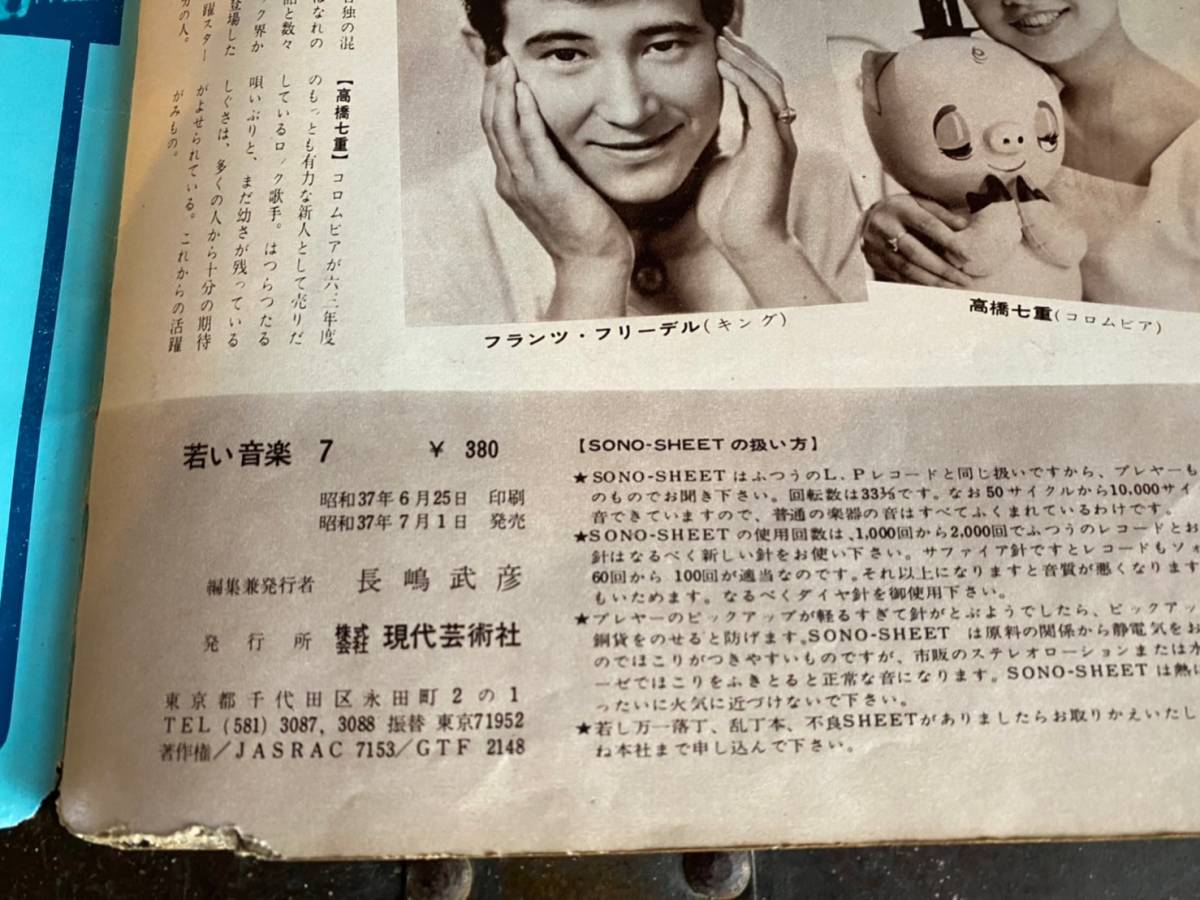 【高橋七重】コロムビアが六三年度
のもっとも有力な新人として売りだ
しているロック歌手。はつらつたる
唄いぶりと、まだ幼さが残っている
しぐさは、多くの人から十分の期待
がよせられている。これからの活躍
がみもの。
独の混
はなれの
と数々
ック界か
登場した
躍スター
の人。
フランツ・フリーデル(キング)
高橋七重(コロムビア)
若い音楽 7 ¥ 380
昭和37年6月25日 印刷
昭和37年7月1日 発売
編集兼発行者 長嶋武彦
発行所 株式会社 現代芸術社
東京都千代田区永田町2の1
TEL (581) 3087, 3088 振替 東京71952
著作権/JASRAC 7153/GTF 2148
【SONO-SHEETの扱い方】
★SONO-SHEETはふつうのL.Pレコードと同じ扱いですから、プレヤーも
のものでお聞き下さい。回転数は33⅓です。なお50サイクルから10,000サイ
音できていますので、普通の楽器の音はすべてふくまれているわけです。
★SONO-SHEETの使用回数は、1,000回から2,000回でふつうのレコードとお
針はなるべく新しい針をお使い下さい。サファイア針ですとレコードもソ
60回から 100回が適当なのです。それ以上になりますと音質が悪くなります
もいためます。なるべくダイヤ針を御使用下さい。
★プレヤーのピックアップが軽るすぎて針がとぶようでしたら、ピックアッ
銅貨をのせると防げます。SONO-SHEET は原料の関係から静電気をお
のでほこりがつきやすいものですが、市販のステレオローションまたは水
ーゼでほこりをふきとると正常な音になります。SONO-SHEETは熱に
ったいに火気に近づけないで下さい。
★若し万一落丁、乱丁本、不良SHEETがありましたらお取りかえいたし
ね本社まで申し込んで下さい。